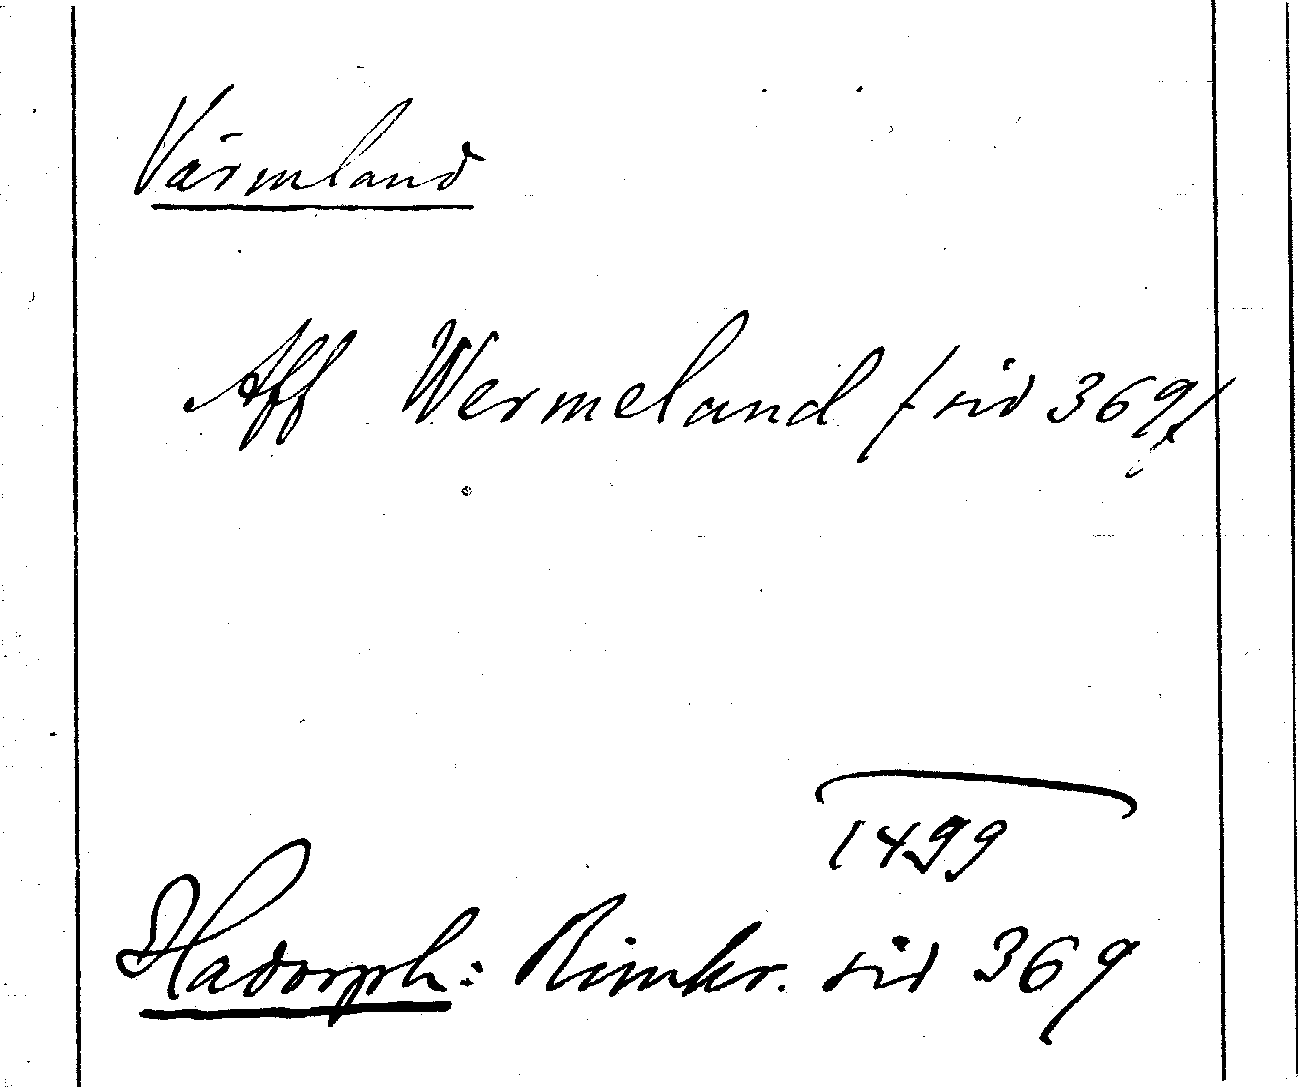 Värmland
Aff Wermeland /: sid 369/
1499
Hadorph: Rimkr. sid 369